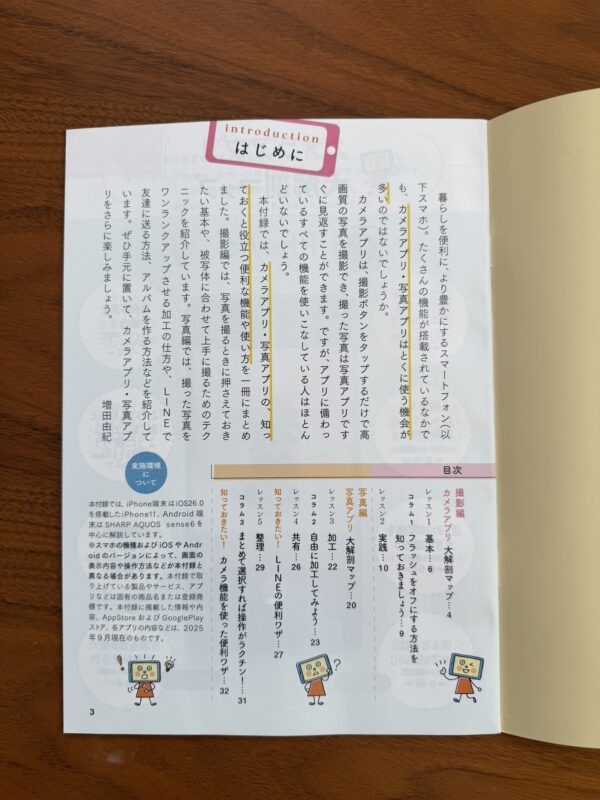 introduction
はじめに
暮らしを便利に、より豊かにするスマートフォン（以
下スマホ）。たくさんの機能が搭載されているなかで
も、カメラアプリ・写真アプリはとくに使う機会が
多いのではないでしょうか。
カメラアプリは、撮影ボタンをタップするだけで高
画質の写真を撮影でき、撮った写真は写真アプリです
ぐに見返すことができます。ですが、アプリに備わっ
ているすべての機能を使いこなしている人はほとん
どいないでしょう。
本付録では、カメラアプリ・写真アプリの、知っ
ておくと役立つ便利な機能や使い方を一冊にまとめ
ました。撮影編では、写真を撮るときに押さえておき
たい基本や、被写体に合わせて上手に撮るためのテク
ニックを紹介しています。写真編では、撮った写真を
ワンランクアップさせる加工の仕方や、ＬＩＮＥで
友達に送る方法、アルバムを作る方法などを紹介して
います。ぜひ手元に置いて、カメラアプリ・写真アプ
リをさらに楽しみましょう。
増田由紀
目次
撮影編
カメラアプリ 大解剖マップ…4
レッスン1 基本…6
コラム1 フラッシュをオフにする方法を
知っておきましょう…9
レッスン2 実践…10
写真編
写真アプリ 大解剖マップ…20
レッスン3 加工…22
コラム2 自由に加工してみよう…23
レッスン4 共有…26
知っておきたい！ ＬＩＮＥの便利ワザ…27
レッスン5 整理…29
コラム3 まとめて選択すれば操作がラクチン！…31
知っておきたい！ カメラ機能を使った便利ワザ…32
実施環境
に
ついて
本付録では、iPhone端末はiOS26.0
を搭載したiPhone11、Android 端
末は SHARP AQUOS sense6を
中心に解説しています。
※スマホの機種および iOS や Andr
oid のバージョンによって、画面の
表示内容や操作方法などが本付録と
異なる場合があります。本付録で取
り上げている製品やサービス、アプ
リなどは固有の商品名または登録商
標です。本付録に掲載した情報や内
容、AppStore および GooglePlay
ストア、各アプリの内容などは、2025
年9月現在のものです。
3